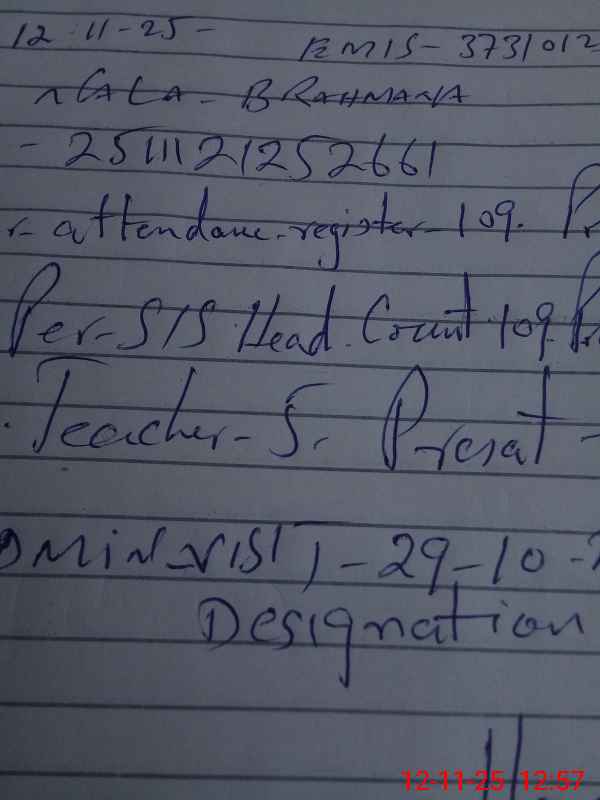 12-11-25- EMIS- 3731012
CALA- BRAHMANA
- 25111121252661
r- attendanc-register- 109. Pr
Per-SIS Head. Count 109. Pr
Teacher- 5. Presat -
DMIN-VISIT-29-10-
Designation
12-11-25 12:57